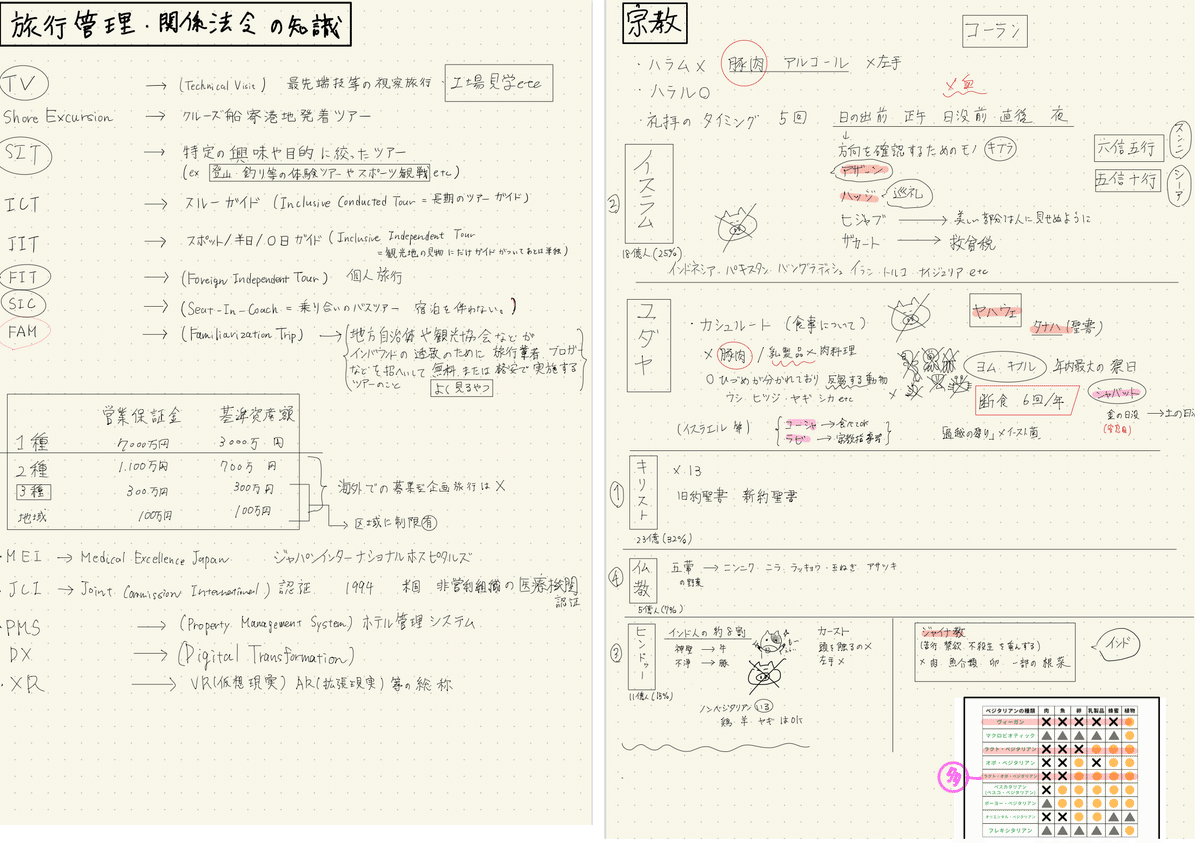 旅行管理・関係法令の知識
TV → (Technical Visit) 最先端技等の視察旅行・工場見学etc
Shore Excursion → クルーズ船寄港地発着ツアー
SIT → 特定の興味や目的に絞ったツアー
(ex 登山・釣り等の体験ツアーやスポーツ観戦 etc)
ICT → スルーガイド (Inclusive Conducted Tour = 長期のツアーガイド)
JIT → スポット/半日/0日ガイド (Inclusive Independent Tour
= 観光地の見物にだけガイドがついてあとは単独)
FIT → (Foreign Independent Tour) 個人旅行
SIC → (Seat-In-Coach = 乗り合いのバスツアー 宿泊を伴わない。)
FAM → (Familiarization Trip) → 地方自治体や観光協会などが
インバウンドの 誘致のために 旅行業者、ブロガー
などを招へいして 無料、または 格安で実施する
ツアーのこと よく見るやつ
営業保証金 基準資産額
1種 7000万円 3000万円
2種 1.100万円 700万円
3種 300万円 300万円
地域 100万円 100万円
海外での募集型企画旅行は×
→ 区域に制限有
・MEI → Medical Excellence Japan ジャパンインターナショナルホスピタルズ
・JCI → Joint Commission International) 認証 1994 米国 非営利組織の医療機関
認証
・PMS → (Property Management System) ホテル管理システム
DX → (Digital Transformation)
・XR → VR(仮想現実) AR(拡張現実) 等の総称
宗教
コーラン
イスラム
② 18億人(25%)
・ハラム× 豚肉 アルコール ×左手
・ハラル○ ×血
・礼拝のタイミング 5回 日の出前 正午 日没前 直後 夜
↓
方向を確認するためのモノ キブラ
アザーン
ハッジ 巡礼
ヒジャブ → 美しい部分は人に見せぬように
ザカート → 救貧税
六信五行 スンニ
五信十行 シーア
インドネシア・パキスタン バングラディシュ イラン・トルコ ナイジェリア etc
ユダヤ
・カシュルート (食事について)
× 豚肉 / 乳製品×肉料理
○ ひづめが分かれており 反芻する動物
ウシ ヒツジ・ヤギ シカ etc
(イスラエル 等) コーシャ → 食べてOK
ラビ → 宗教指導者
ヤハウェ
タナハ (聖書)
ヨム・キプル 年内最大の祭日
断食 6回/年
シャバット
金の日没 → 土の日没
(安息日)
「過越の祭り」×イースト菌
キリスト
① 23億(32%)
× 13
旧約聖書 新約聖書
仏教
④ 5億人(7%)
五葷 → ニンニク ニラ ラッキョウ・玉ねぎ アサツキ
の野菜
ヒンドゥー
③ 11億人(15%)
インド人の約8割
神聖 → 牛
不浄 → 豚
カースト
頭を触るの×
左手×
ノンベジタリアン いる
・鶏 羊 ヤギはOK
ジャイナ教
(苦行 禁欲 不殺生を重んずる)
×肉 魚介類 卵 一部の根菜
インド
ベジタリアンの種類 肉 魚 卵 乳製品 蜂蜜 植物
ヴィーガン ✕ ✕ ✕ ✕ ✕ ●
マクロビオティック ▲ ▲ ▲ ▲ ▲ ●
ラクト・ベジタリアン ✕ ✕ ✕ ● ● ●
オボ・ベジタリアン ✕ ✕ ● ✕ ● ●
ラクト・オボ・ベジタリアン ✕ ✕ ● ● ● ●
ペスカタリアン
(ペスコ・ベジタリアン) ✕ ● ● ● ● ●
ポーヨー・ベジタリアン ▲ ● ● ● ● ●
オリエンタル・ベジタリアン ✕ ✕ ● ● ▲ ▲
フレキシタリアン ▲ ▲ ▲ ▲ ▲ ●